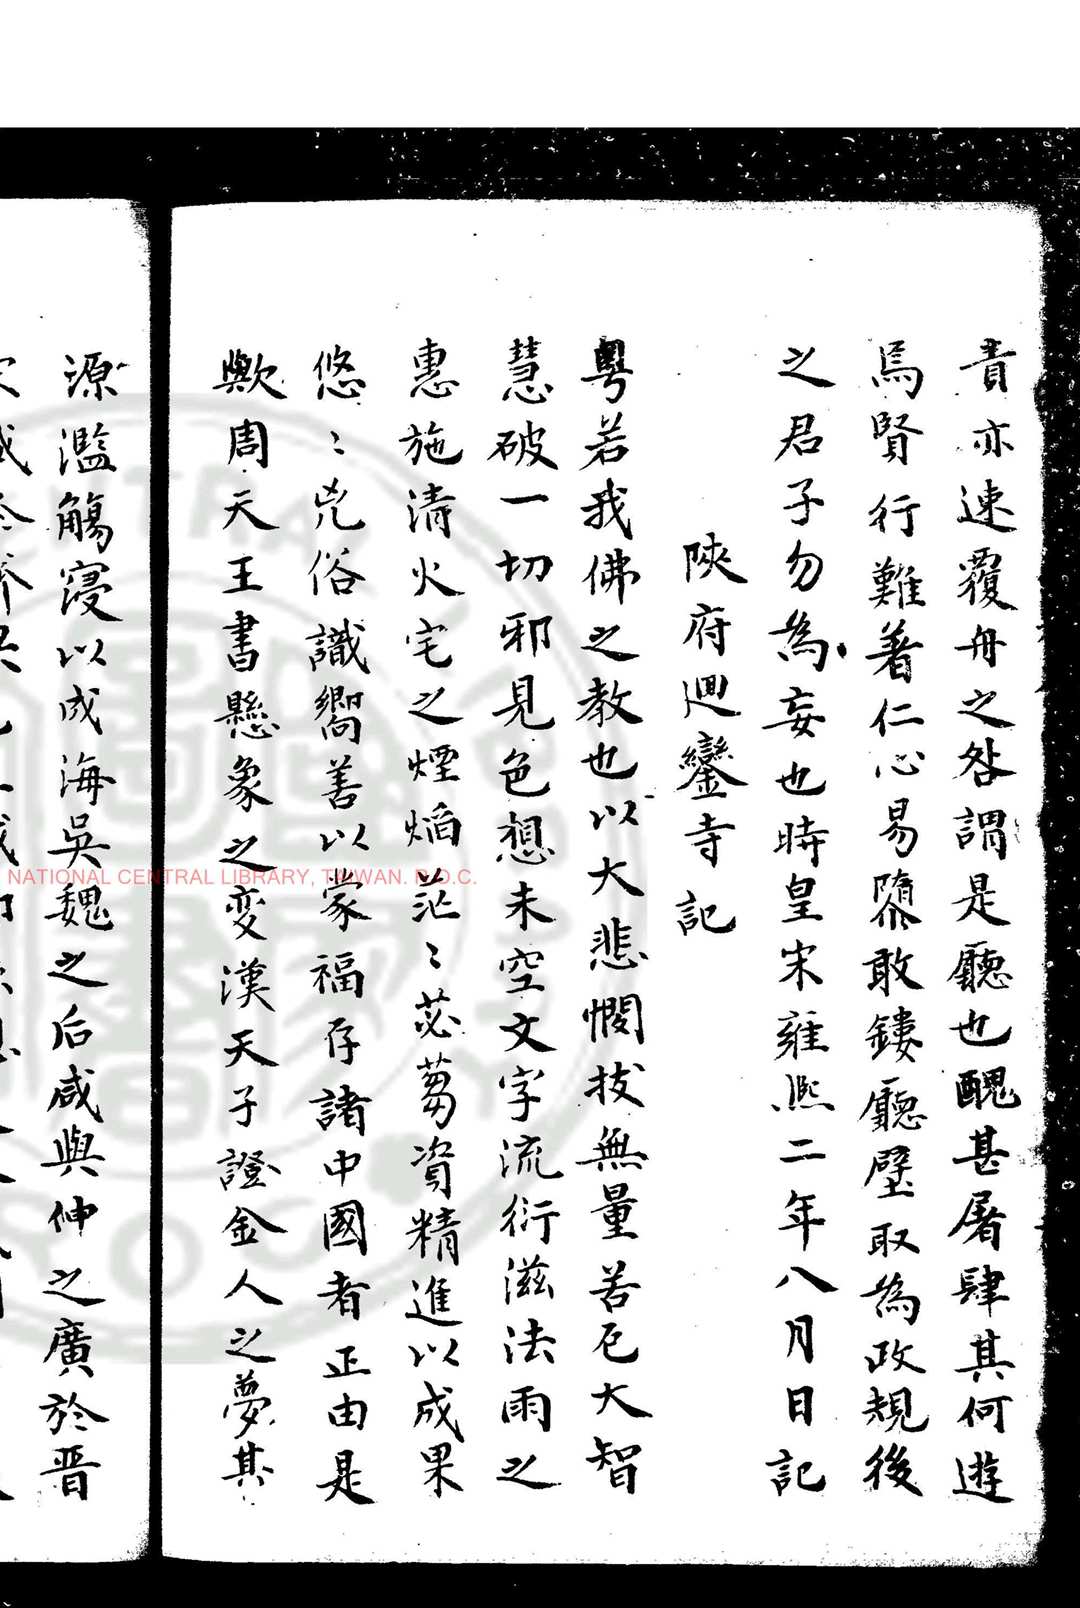 責亦速覆舟之咎謂是廳也醜甚屠肆其何遊
焉賢行難著仁心易隳敢鏤廳壁取為政規後
之君子勿為妄也時皇宋雍熙二年八月日記
陝府迴鑾寺記
粵若我佛之教也以大悲憫拔無量苦厄大智
慧破一切邪見色想未空文字流衍滋法雨之
惠施清火宅之煙焰茫〻苾蒭資精進以成果
悠〻兇俗識嚮善以蒙福存諸中國者正由是
歟周天王書懸象之变漢天子證金人之夢其
源濫觴寖以成海吳魏之后咸與伸之廣於晋
NATIONAL CENTRAL LIBRARY, TAIWAN. R.O.C.